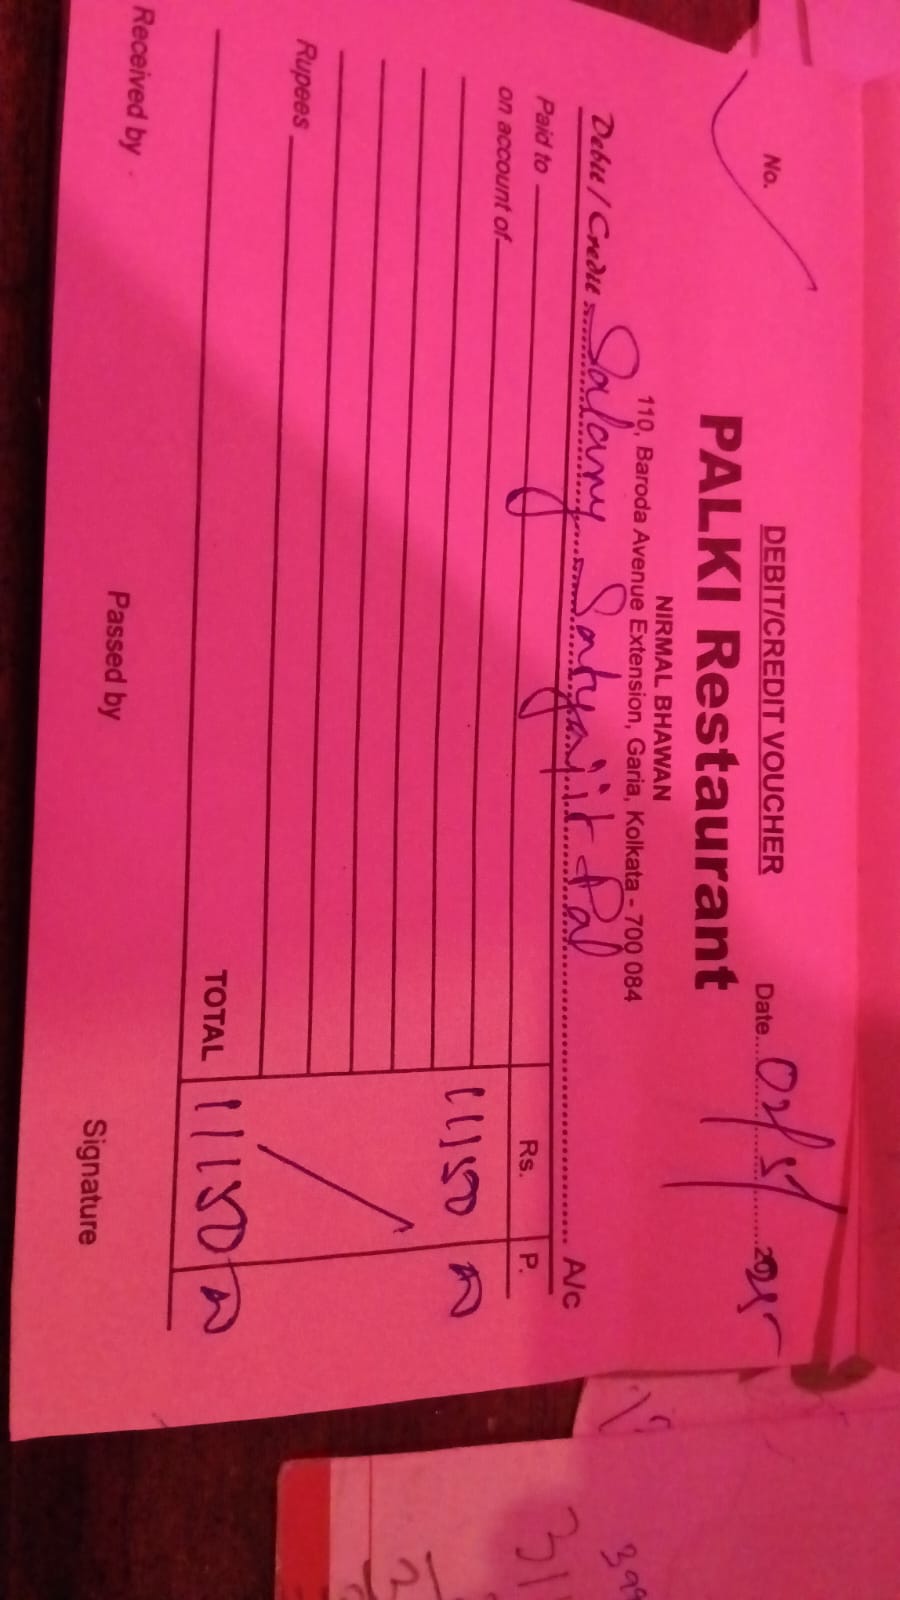 DEBIT/CREDIT VOUCHER
No.
Date 02/5/ 2025
PALKI Restaurant
NIRMAL BHAWAN
110, Baroda Avenue Extension, Garia, Kolkata - 700 084
Debit / Credit Salary Satyajit Pal A/c
Paid to
Rs. P.
on account of
11150
Rupees
TOTAL 11150
Received by Passed by Signature